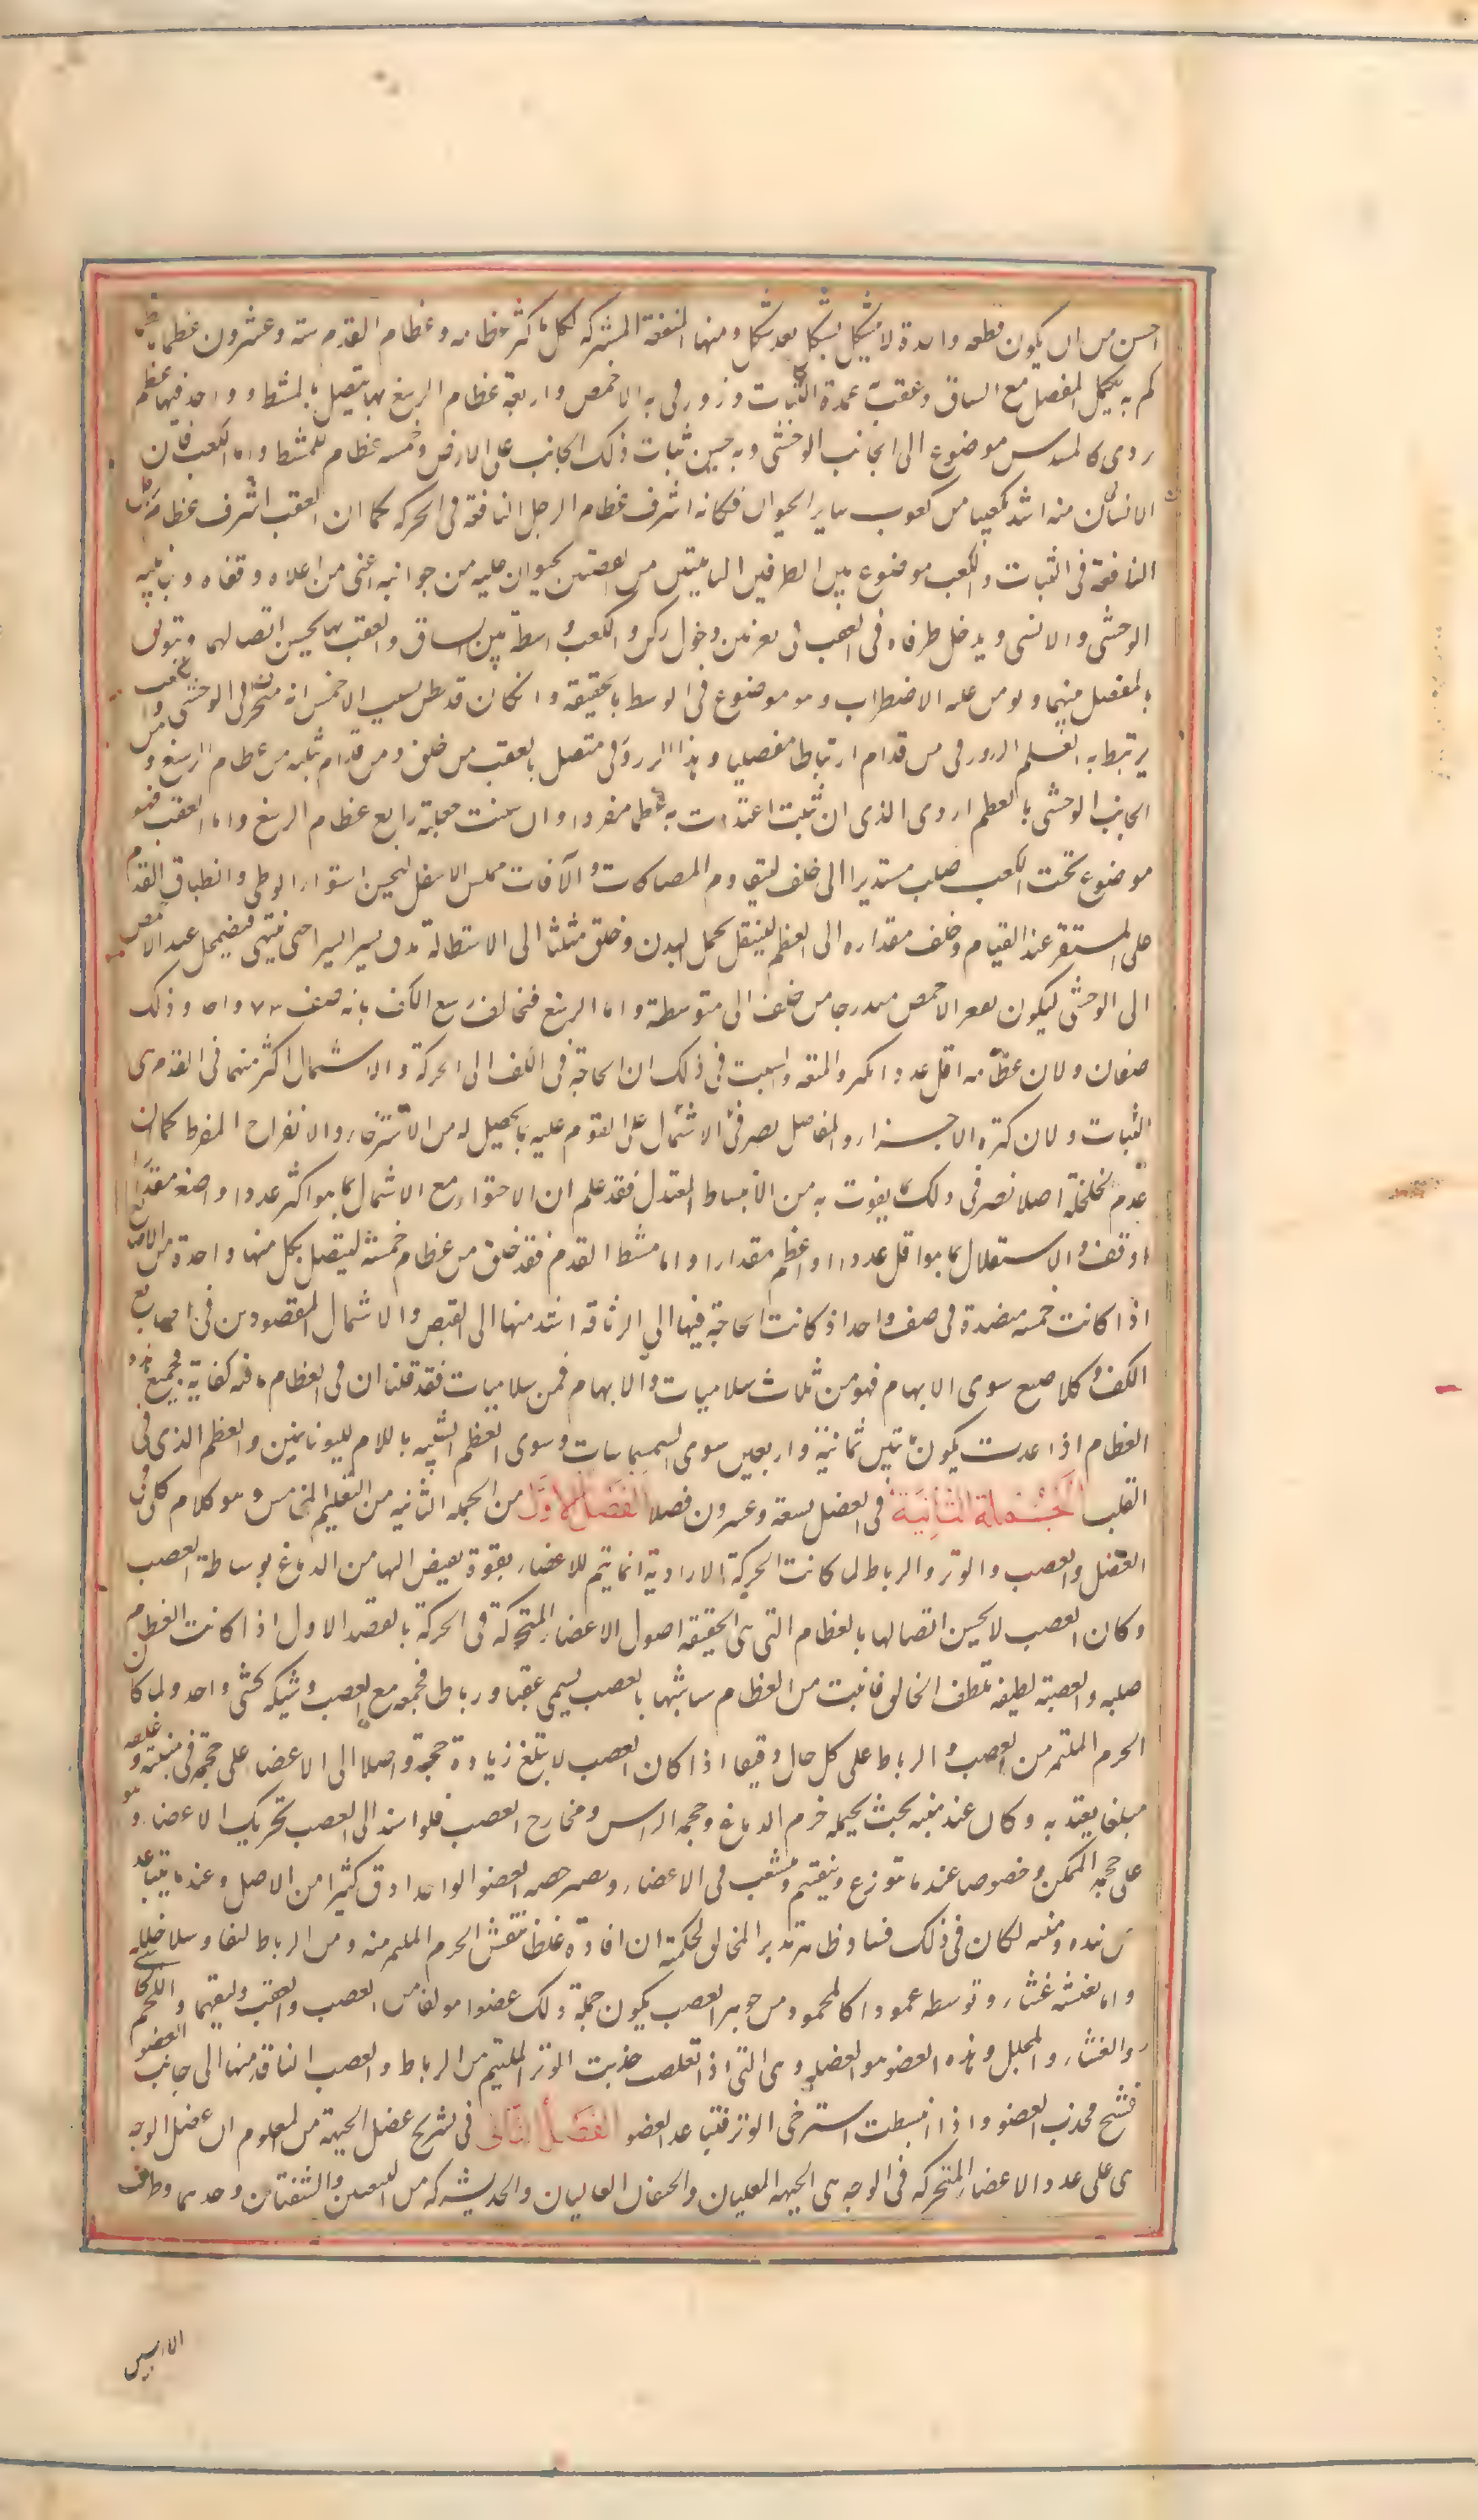 احسن من ان يكون قطعه واحدة لا يتشكل بشكل بعد شكل ومنها المنفعة المشتركه لكل ما كثر عظامه وعظام القدم ستة وعشرون عظما
كم به يكمل المفصل مع الساق وعقب به عمدة الثبات وزورقى به الاخمص واربعة عظام الرسغ بها يتصل بالمشط وواحد منها عظم
ردى كالمسدس موضوع الى الجانب الوحشى وبه يحسن ثبات ذلك الجانب على الارض وخمسه عظام للمشط واما الكعب فان
الانسان منه اشد تكعيبا من كعوب ساير الحيوان فكانه اشرف عظام الرجل النافعة فى الحركه كما ان العقب اشرف عظام
النافعة فى الثبات والكعب موضوع بين الطرفين الناتئين من القصبتين يحتويان عليه من جوانبه اعنى من اعلاه وقفاه وجانبيه
الوحشى والانسى ويدخل طرفاه فى العقب فى نقرتين دخول ركن والكعب واسطة بين الساق والعقب بها يحسن اتصالهما ويتوثق
المفصل بينهما ويومن عليه الاضطراب وهو موضوع فى الوسط بالحقيقة وان كان قد يظن بسبب الاخمص انه منحرف الى الوحشى
يرتبط به العظم الزورقى من قدام ارتباطا مفصليا وهذا الزورقى متصل بالعقب من خلف ومن قدام بثلثه من عظام الرسغ ومن
الجانب الوحشى بالعظم الردى الذى ان شئت اعتددت به عظما منفردا وان شئت جعلته رابع عظام الرسغ واما العقب فهو
موضوع تحت الكعب صلب مستديرا الى خلف ليقاوم المصاكات والآفات مملس الاسفل ليحسن استواء الوطى وانطباق القدم
على المستقر عند القيام وخلف مقداره الى العظم ليستقل بحمل البدن وخلق مثلثا الى الاستطالة يدق يسيرا يسيرا حتى ينتهى فيضمحل عند الاخمص
الى الوحشى ليكون تقعر الاخمص متدرجا من خلف الى متوسطة واما الرسغ فيخالف رسغ الكف بانه صف واحد وذلك
صفان ولان عظامه اقل عددا بكثير والمنفعة والسبب فى ذلك ان الحاجة فى الكف الى الحركة والاشتمال اكثر منهما فى القدم
الثبات ولان كثرة الاجزاء والمفاصل يضر فى الاشتمال على المقوم عليه بما يحصل له من الاسترخاء والانفراج المفرط كما ان
عدم الخلخلة اصلا يضر فى ذلك بما يفوت به من الانبساط المعتدل فقد علم ان الاحتواء مع الاشتمال بما هو اكثر عددا واصغر مقدارا
اوفق والاستقلال بما هو اقل عددا واعظم مقدارا واما مشط القدم فقد خلق من عظام خمسة ليتصل بكل منها واحدة من الاصابع
اذا كانت خمسه منضدة فى صف واحد اذ كانت الحاجة فيها الى الوثاقه اشد منها الى القبض والاشتمال المقصودين فى اصابع
الكف وكل اصبع سوى الابهام فهو من ثلاث سلاميات والابهام فمن سلاميات فقد قلنا ان فى العظام ما فيه كفاية فجميع هذه
العظام اذا عدت يكون مائتين ثمانية واربعين سوى السمسمانيات وسوى العظم الشبيه باللام لليونانيين والعظم الذى فى
القلب الجملة الثانية فى العضل تسعة وعشرون فصلا الفصل الاول من الجمله الثانيه من التعليم الخامس وهو كلام كلى فى
العضل والعصب والوتر والرباط لما كانت الحركة الارادية انما يتم للاعضاء بقوة يفيض اليها من الدماغ بوساطة العصب
وكان العصب لا يحسن اتصالها بالعظام التى هى الحقيقه اصول الاعضاء المتحركة فى الحركة بالقصد الاول اذا كانت العظام
صلبه والعصبة لطيفه تلطف الخالق فانبت من العظام شبيها بالعصب يسمى عقبا ورباطا فجمعه مع العصب وشبكه كشى واحد ولما كان
الجرم الملتئم من العصب والرباط على كل حال دقيقا اذا كان العصب لا تبلغ زيادة حجمه واصلا الى الاعضاء على حجمه فى منبته
مبلغا يعتد به وكان عند منبته بحيث يحتمله جرم الدماغ وحجم الراس ومخارج العصب فلو اسند الى العصب تحريك الاعضاء وهو
على حجمه الممكن وخصوصا عند ما يتوزع وينقسم ويتشعب فى الاعضاء ويصير حصة العضو الواحد ادق كثيرا من الاصل وعند ما يتباعد
عن مبدئه ومنبته لكان فى ذلك فساد ظاهر فدبر الخالق لحكمته ان افاده غلظا بتنفيش الجرم الملتئم منه ومن الرباط ليفا وملا خلله
واما تغشيه غشاء وتوسطه عمودا كالمحور من جوهر العصب يكون جملة ذلك عضوا مولفا من العصب والعقب وليفهما واللحم
والغشاء والمجلل وهذه العضو هو العضلة وهى التى اذا تقلصت جذبت الوتر الملتئم من الرباط والعصب النافذ منها الى جانب العضو
فتشنج فجذب العضو واذا انبسطت استرخى الوتر فتباعد العضو الفصل الثانى فى تشريح عضل الجبهة من المعلوم ان عضل الوجه
هى على عدد الاعضاء المتحركه فى الوجه هى الجبهة والمقلتان والجفنان العاليان والخد بشركه من الشفتين والشفتان وحدهما وطرفا